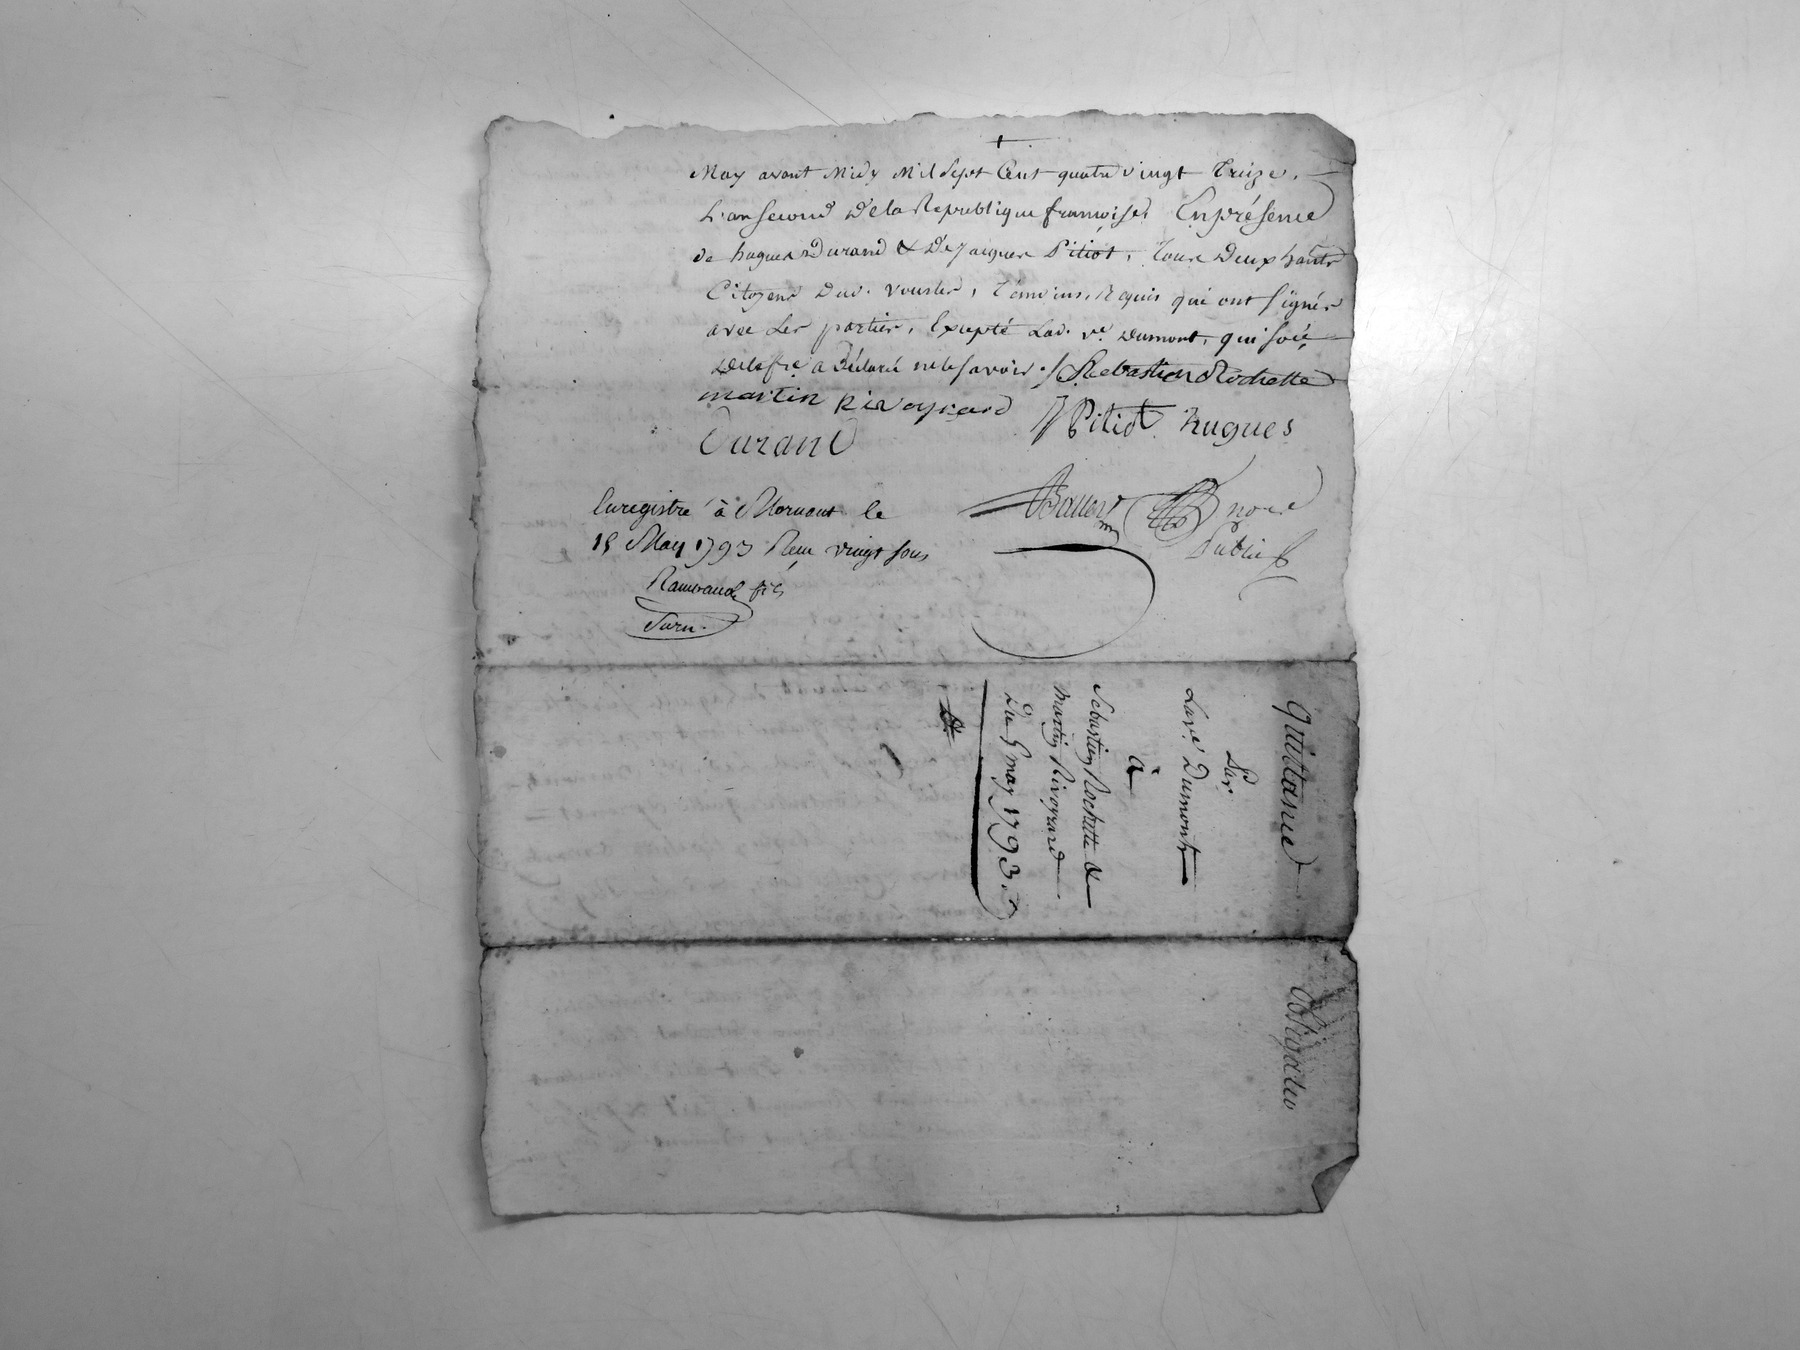 May avant Midy Mil Sept Cent quatre vingt Treize.
L'an second De la Republique francoise, En présence
de hugues Durand & De Jacques Pitiot, Tous Deux hants
Citoyens Dud. Vourles, Témoins, Requis qui ont signés
avec Les parties, Excepté Lad. ve. Dumont, qui
a Déclaré ne le savoir ./. Sebastien Rochette
martin Rivoyrard
J Pitiot hugues
Durand
Enregistré à Mornant le
15 May 1793 Reçu vingt sous
Rambaud fils
nore
Public
Quittance
Par
La ve. Dumont
à
Sebastien Rochette &
Martin Rivoyrard
Du 5 may 1793.
Obligation